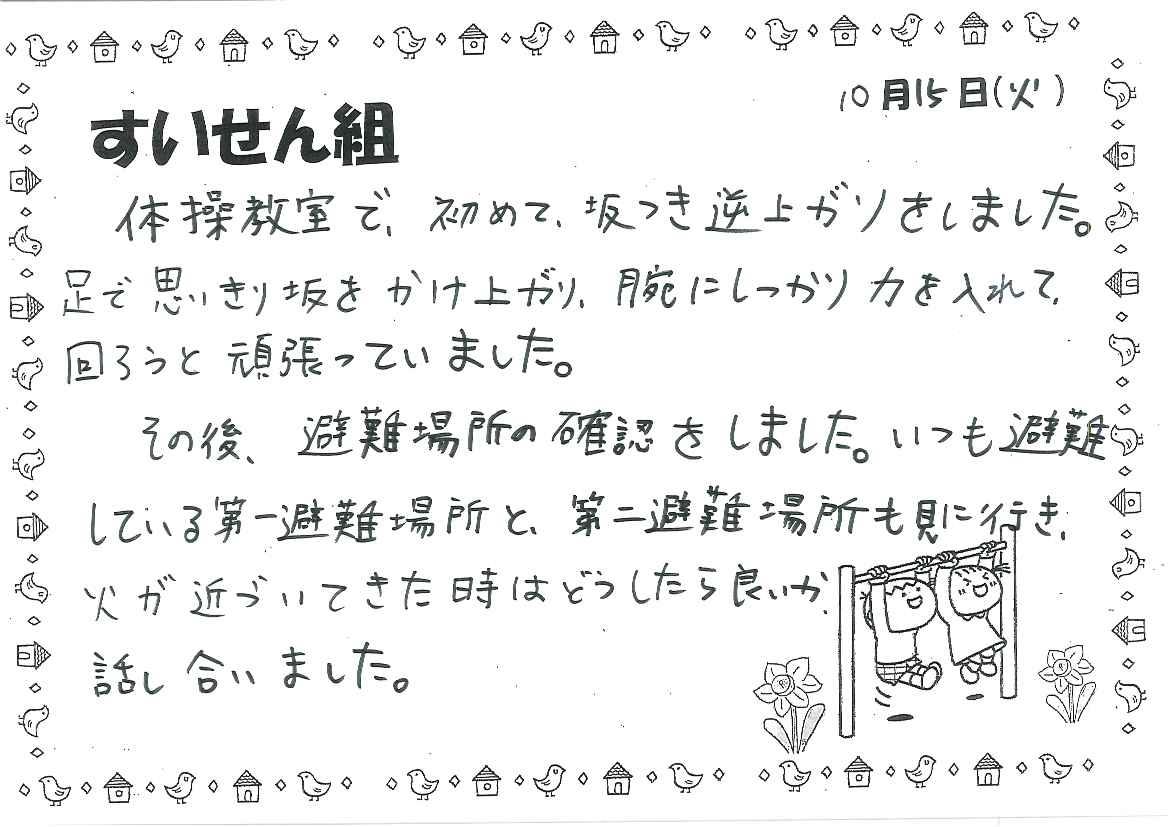 10月15日(火)
すいせん組
体操教室で、初めて、坂つき逆上がりをしました。
足で思いきり坂をかけ上がり、腕にしっかり力を入れて、
回ろうと頑張っていました。
その後、避難場所の確認をしました。いつも避難
している第一避難場所と、第二避難場所も見に行き、
火が近づいてきた時はどうしたら良いか、
話し合いました。